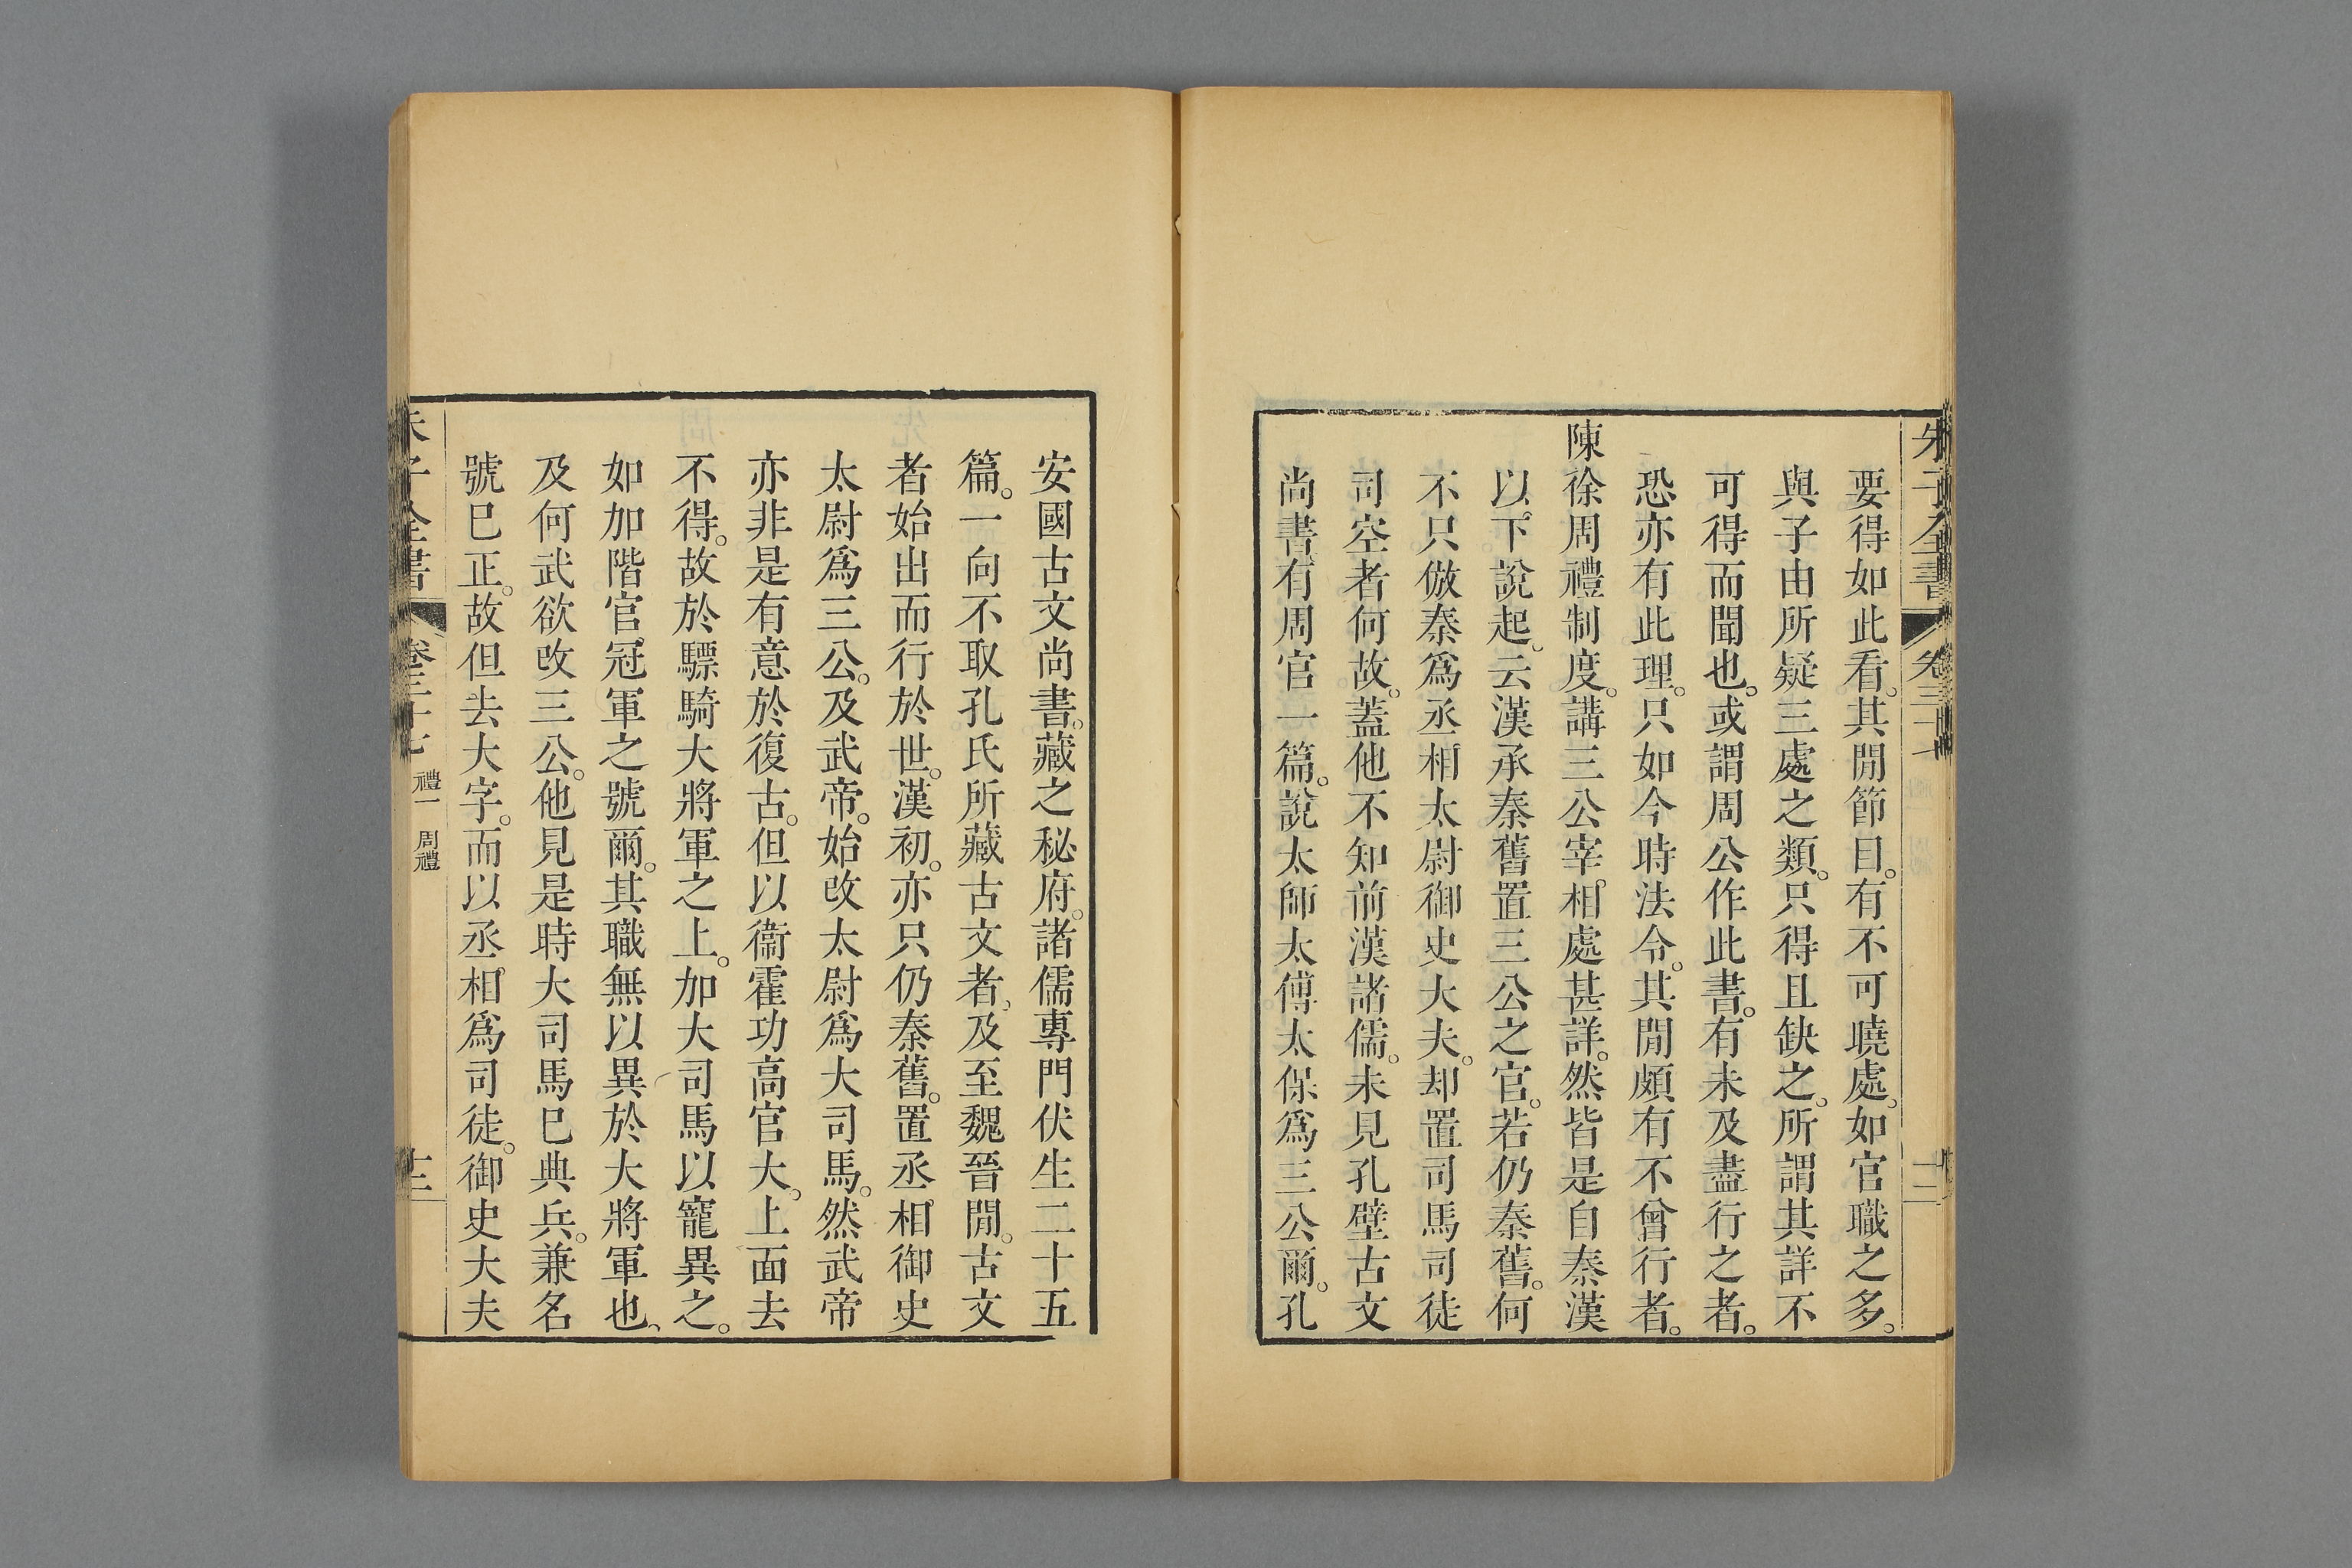 朱子全書 卷三十七
要得如此看。其閒節目。有不可曉處。如官職之多。
與子由所疑三處之類。只得且缺之。所謂其詳不
可得而聞也。或謂周公作此書。有未及盡行之者。
恐亦有此理。只如今時法令。其閒頗有不曾行者。
陳徐周禮制度。講三公宰相處甚詳。然皆是自秦漢
以下說起。云漢承秦舊置三公之官。若仍秦舊。何
不只倣秦爲丞相太尉御史大夫。却置司馬司徒
司空者何故。蓋他不知前漢諸儒。未見孔壁古文
尚書有周官一篇。說太師太傅太保爲三公爾。孔
安國古文尚書。藏之秘府。諸儒專門伏生二十五
篇。一向不取孔氏所藏古文者、及至魏晉閒。古文
者始出而行於世。漢初。亦只仍秦舊。置丞相御史
太尉爲三公。及武帝。始改太尉爲大司馬。然武帝
亦非是有意於復古。但以衞霍功高官大。上面去
不得。故於驃騎大將軍之上。加大司馬以寵異之。
如加階官冠軍之號爾。其職無以異於大將軍也、
及何武欲改三公。他見是時大司馬巳典兵。兼名
號巳正。故但去大字。而以丞相爲司徒。御史大夫
朱子全書 卷三十七 禮一 周禮 十三